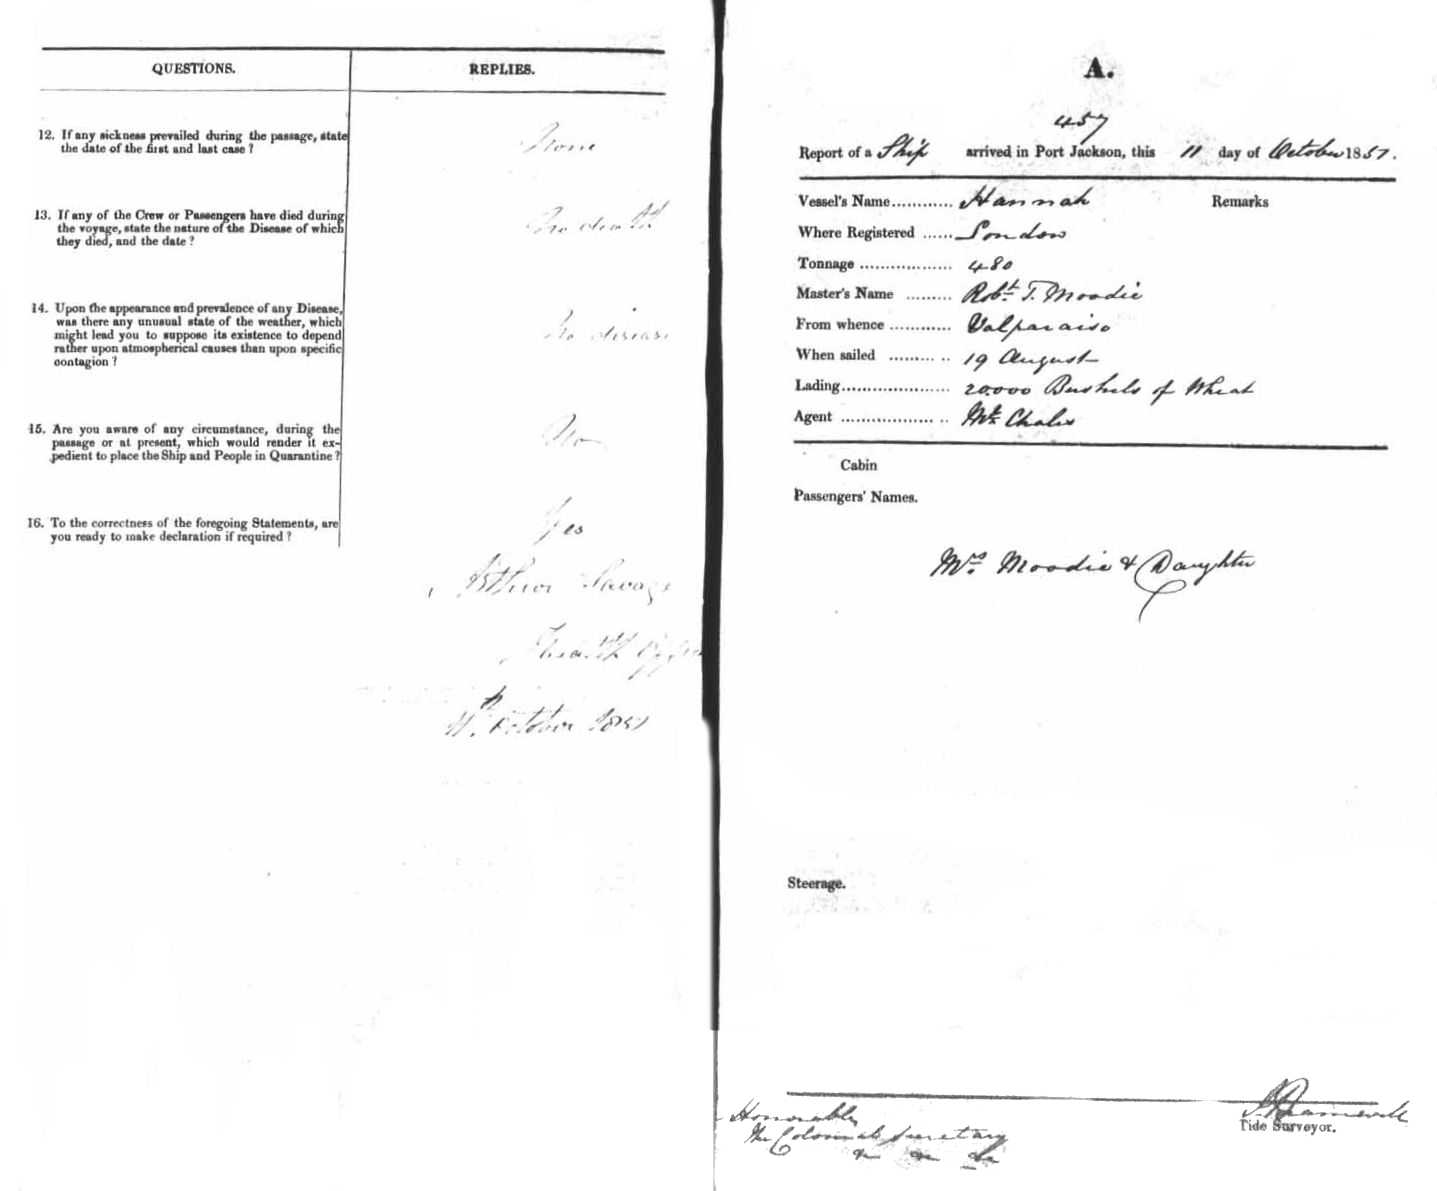 QUESTIONS. REPLIES.
12. If any sickness prevailed during the passage, state
the date of the first and last case ?
None
13. If any of the Crew or Passengers have died during
the voyage, state the nature of the Disease of which
they died, and the date ?
No death
14. Upon the appearance and prevalence of any Disease,
was there any unusual state of the weather, which
might lead you to suppose its existence to depend
rather upon atmospherical causes than upon specific
contagion ?
No disease
15. Are you aware of any circumstance, during the
passage or at present, which would render it ex-
pedient to place the Ship and People in Quarantine ?
No
16. To the correctness of the foregoing Statements, are
you ready to make declaration if required ?
Yes
Arthur Savage
Health
11th October 1851
A.
457
Report of a Ship arrived in Port Jackson, this 11 day of October 1851.
Vessel's Name............ Hannah Remarks
Where Registered ...... London
Tonnage .................. 480
Master's Name ......... Robt T. Moodie
From whence ............ Valparaiso
When sailed ......... .. 19 August
Lading..................... 20.000 Bushels of Wheat
Agent ................... .. Mr
Cabin
Passengers' Names.
Mrs Moodie & Daughter
Steerage.
Honorable
The Colonial Secretary
Tide Surveyor.